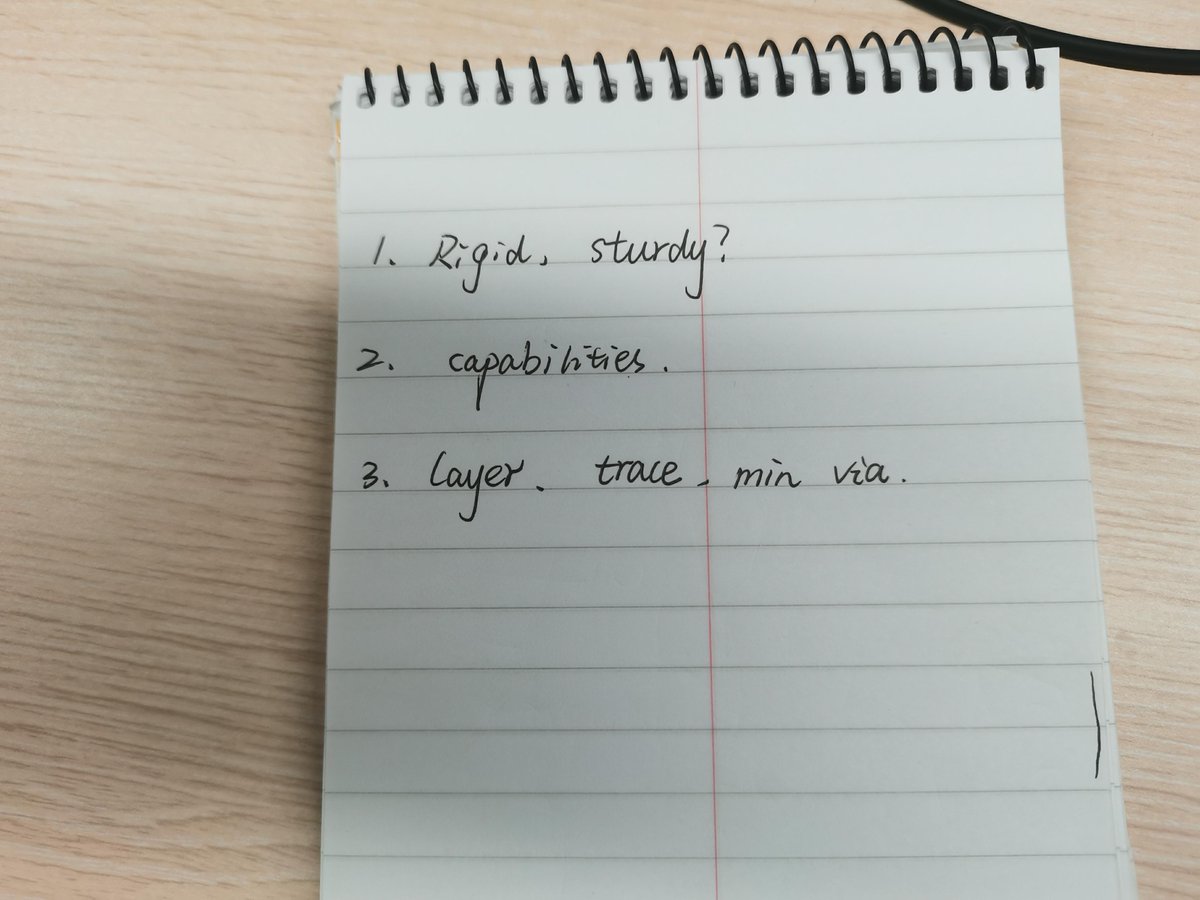 1. Rigid, sturdy?
2. capabilities.
3. Layer. trace. min via.